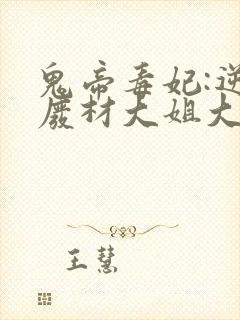 鬼帝毒妃:逆
废材大姐大
王慧